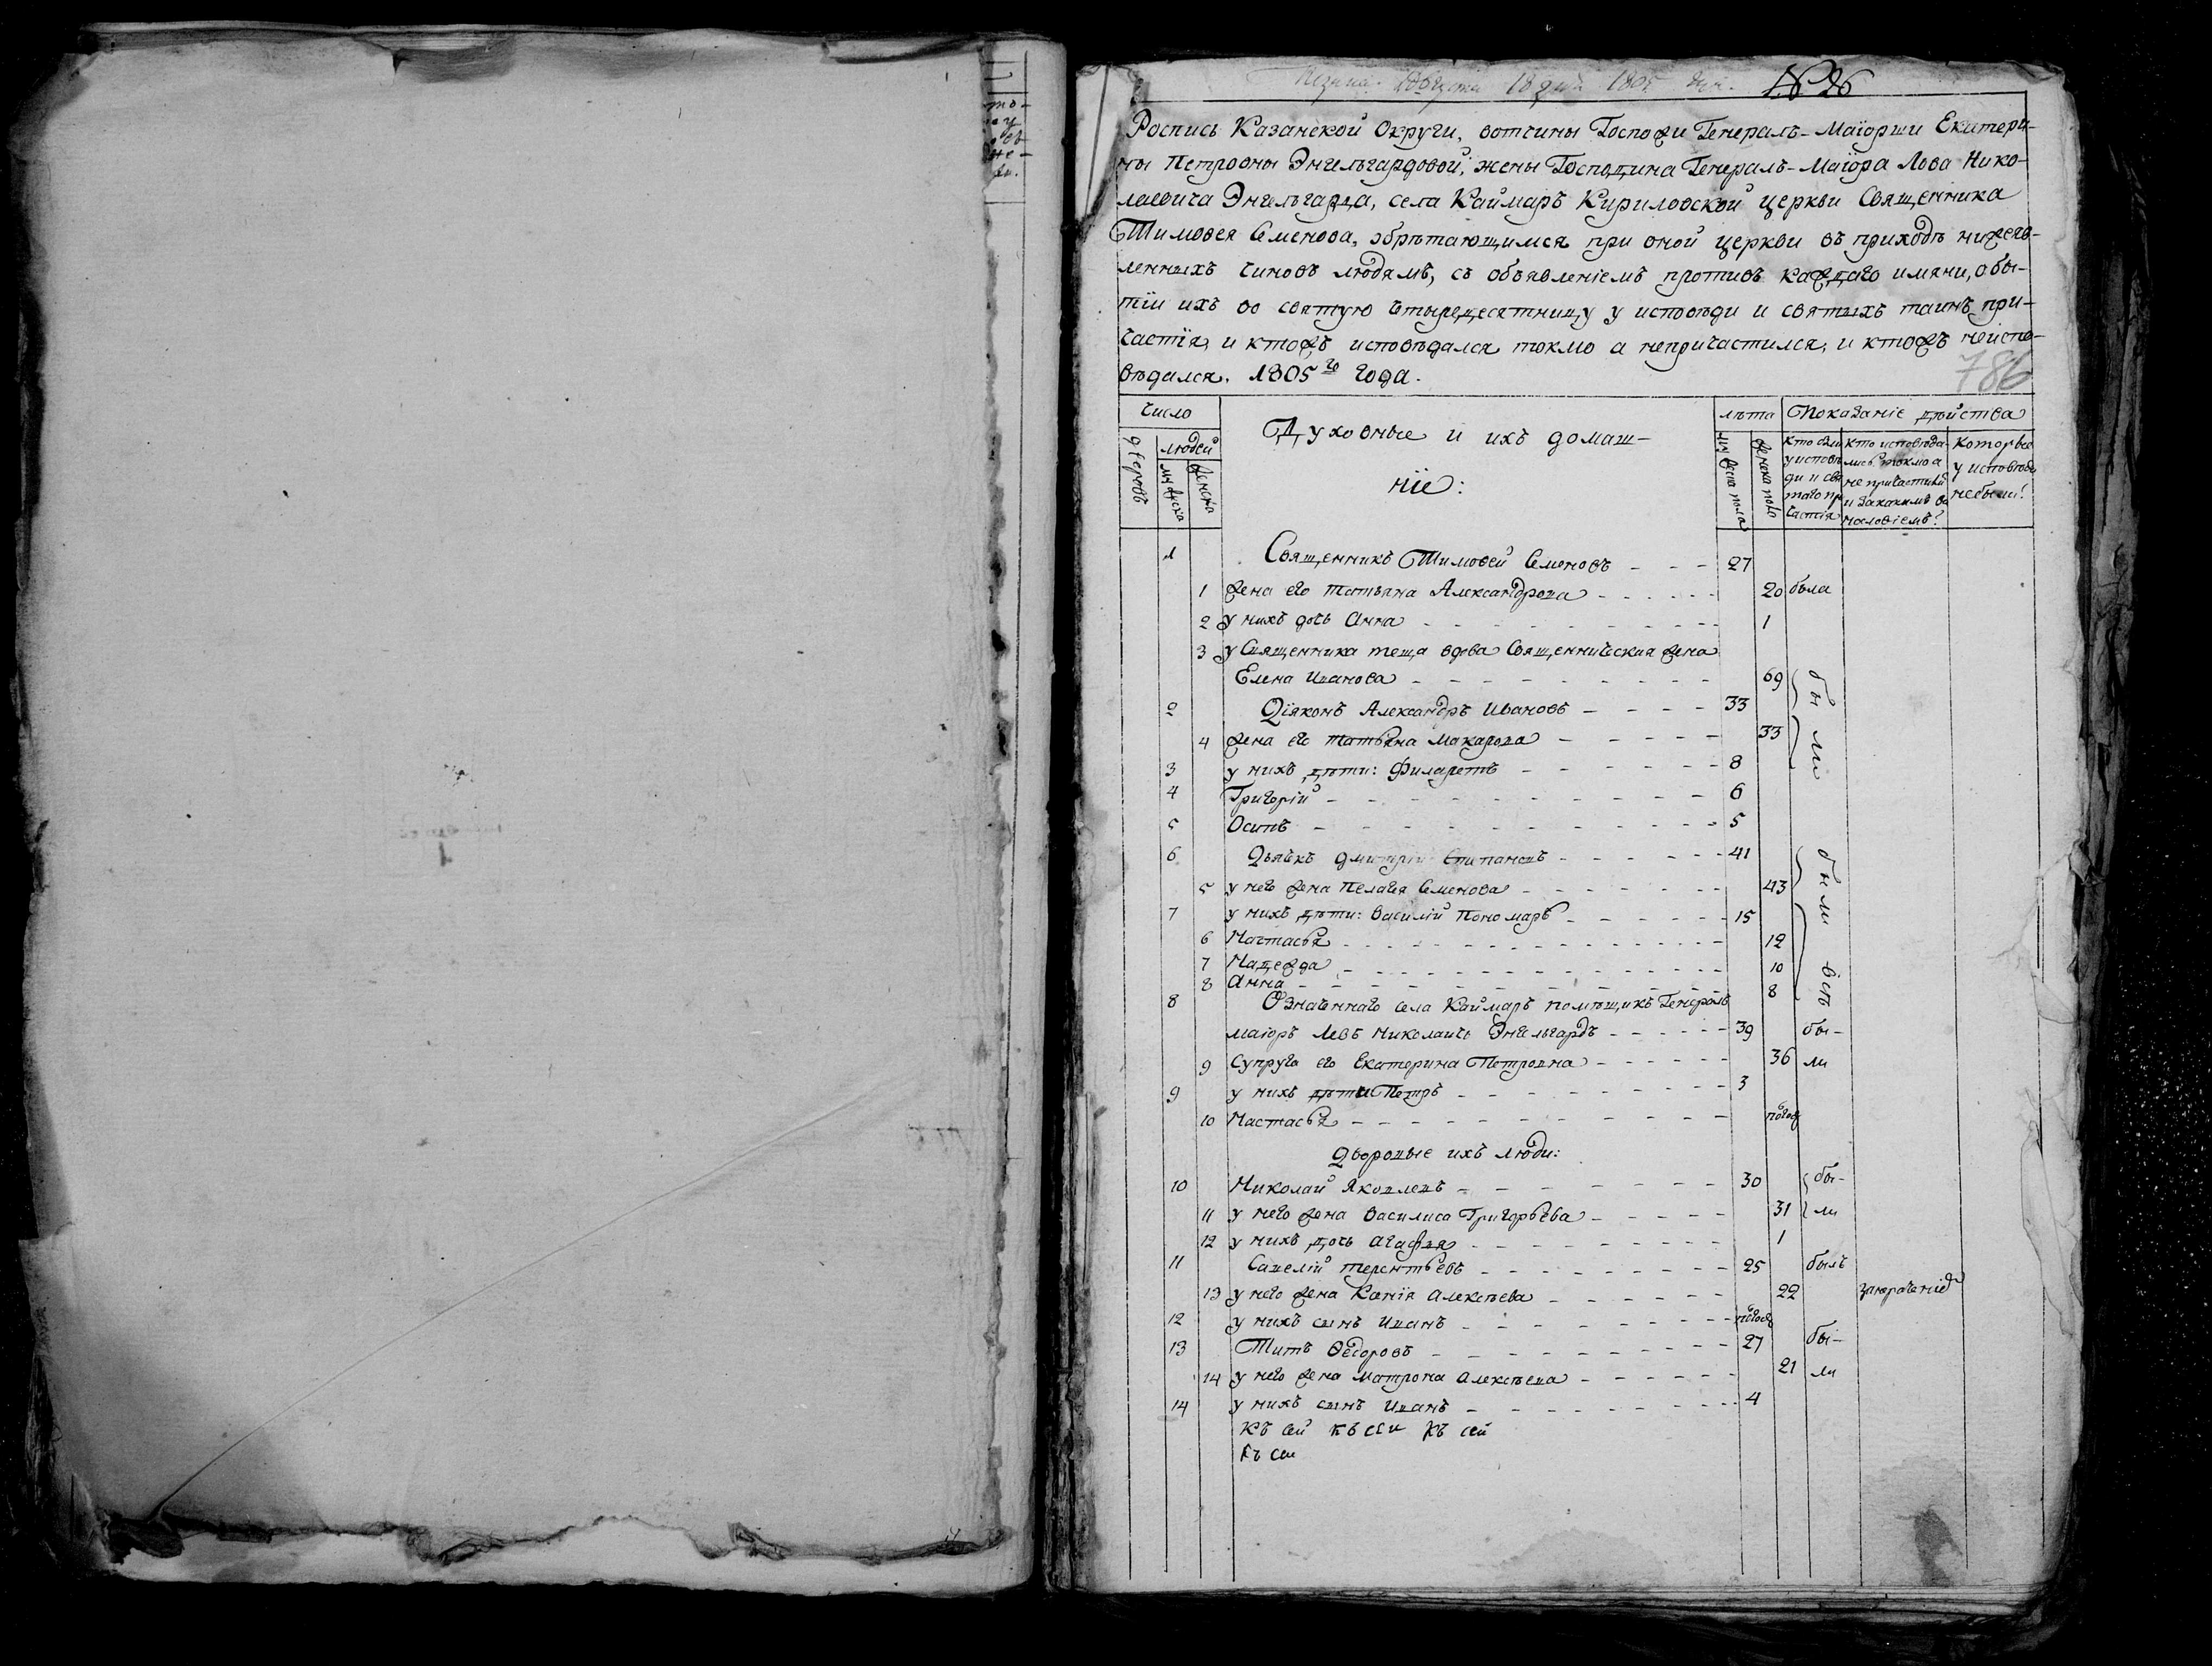 Августа 18 дня 1805 № 26
Роспись Казанской Округи, вотчины Госпожи Генералъ-Маіорши Екатери-
ны Петровны Энгельгардовой, жены Господина Генералъ-Маіора Лва Нико-
лаевича Энгельгарда, села Каймаръ Кириловской церкви Священника
Тимовея Семенова, обрѣтающимся при оной церкви въ приходѣ нижеяв-
ленныхъ чиновъ людямъ, съ объявленіемъ противъ каждаго имяни, о бы-
тіи ихъ во святую четыредесятницу у исповѣди и святыхъ таинъ при-
частія, и ктожъ исповѣдался токмо а непричастился, и ктожъ неиспо-
вѣдался. 1805го года.
786
Число лѣта Показаніе дѣйства
Духовные и ихъ домаш-
ніе:
дворовъ людей мужеска женска мужеска пола женска пола
кто были у исповѣди и святого причастія
кто исповѣдались токмо а не причастились и закакимъ виналовіемъ?
которые у исповѣди небыли?
1 Священникъ Тимовей Семеновъ - - - 27
1 жена его татьяна Александрова - - - 20 была
2 у нихъ дочь Анна - - - 1
3 у Священника теща вдова Священническая жена
Елена Иванова - - - 69
2 Діяконъ Александръ Ивановъ - - - 33 были
4 жена его татьяна Макарова - - - 33
3 у нихъ дѣти: Филаретъ - - - 8
4 Григорій - - - 6
5 Осипъ - - - 5
6 Дьячкъ дмитрій Степановъ - - - 41
5 у него жена пелагея Семенова - - - 43 были
7 у нихъ дѣти: василій Пономарь - - - 15
6 Настасья - - - 12
7 Надежда - - - 10
8 Анна - - - 8
8 Означеннаго села Каймаръ помѣщикъ Генералъ
маіоръ Левъ николаичь Энгельгардъ - - - 39 бы-
9 Супруга его Екатерина Петровна - - - 36 ли
9 у нихъ дѣти Петръ - - - 3
10 Настасья - - - полгода
дворовые ихъ люди:
10 Николай Яковлевъ - - - 30 бы-
11 у него жена василиса Григорьева - - - 31 ли
12 у нихъ дочь агафья - - - 1
11 Савелій терентьевъ - - - 25 былъ
13 у него жена Ксенія алексѣева - - - 22
12 у нихъ сынъ Иванъ - - - полгода
13 Титъ Федоровъ - - - 27 бы-
14 у него жена матрона алексѣева - - - 21 ли
14 у нихъ сынъ Иванъ - - - 4
къ сей къ сей къ сей
къ сей